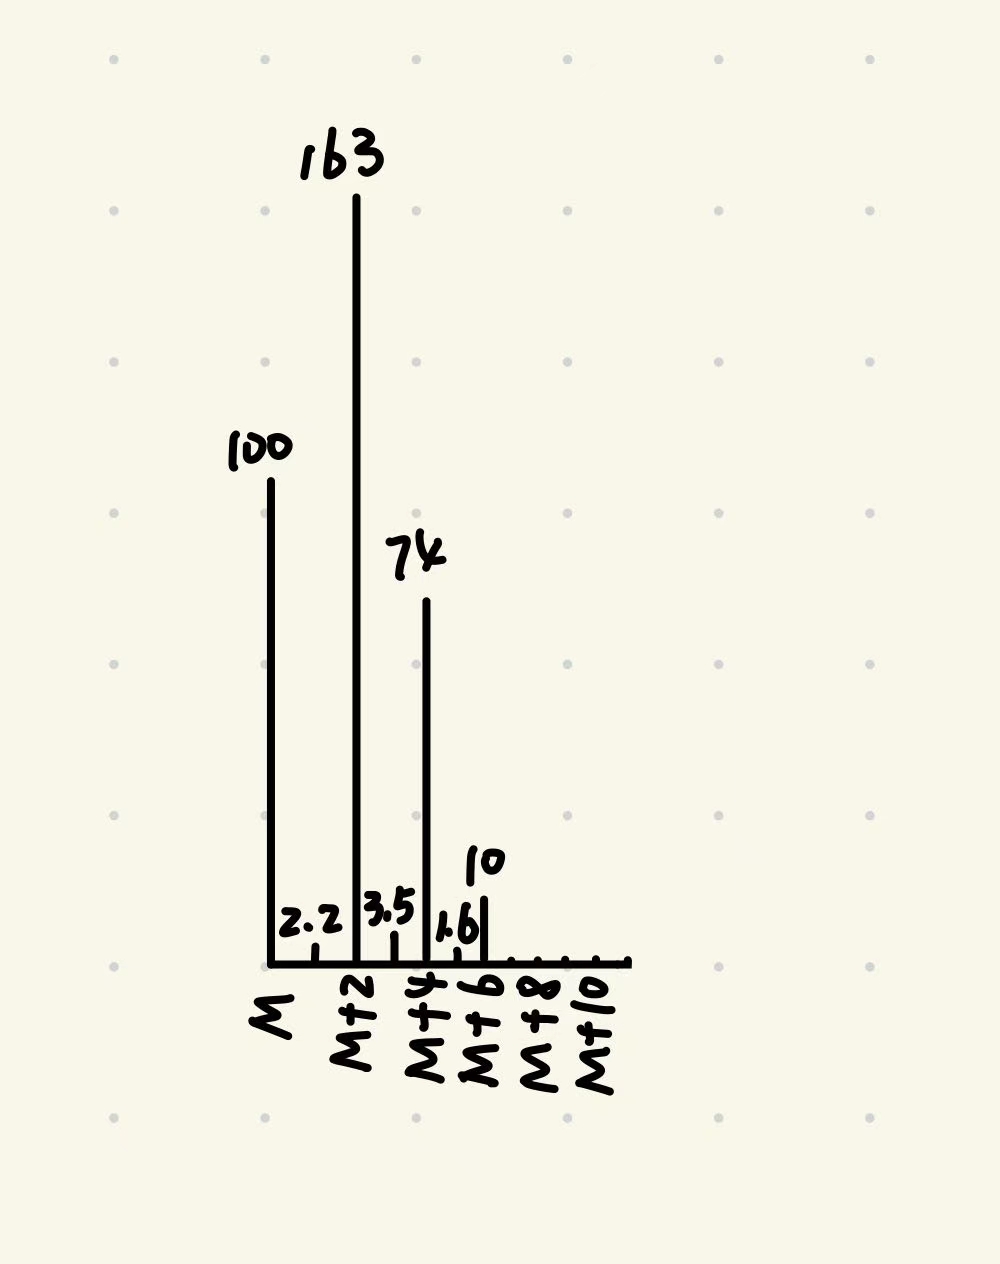 163
100
74
10
2.2
3.5
1.6
M
M+2
M+4
M+6
M+8
M+10